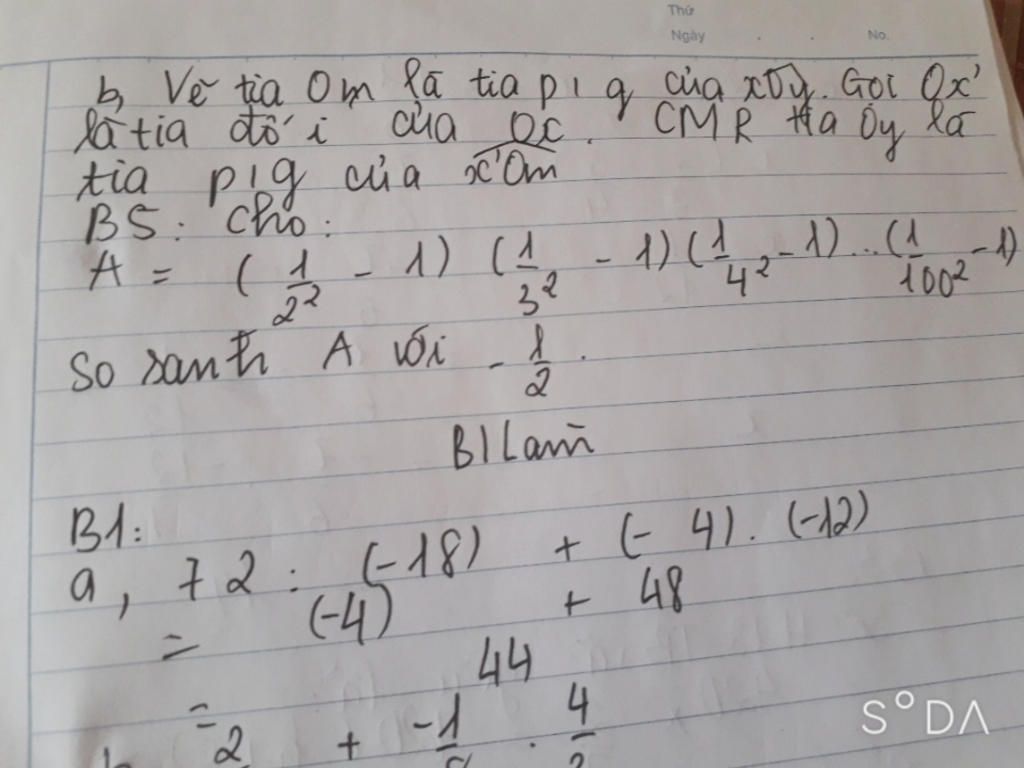 Thứ
Ngày . . No.
b, Vẽ tia Om là tia p/g của xOy. Gọi Ox'
là tia đối của Ox. CMR tia Oy là
tia p/g của x'Om
B5: Cho:
A = (1/2² - 1) (1/3² - 1) (1/4² - 1) .. (1/100² - 1)
So sanh A với - 1/2.
Bl Lam
B1:
a, 72 : (-18) + (- 4). (-12)
= (-4) + 48
= 44
2 + -1 . 4
S°DA